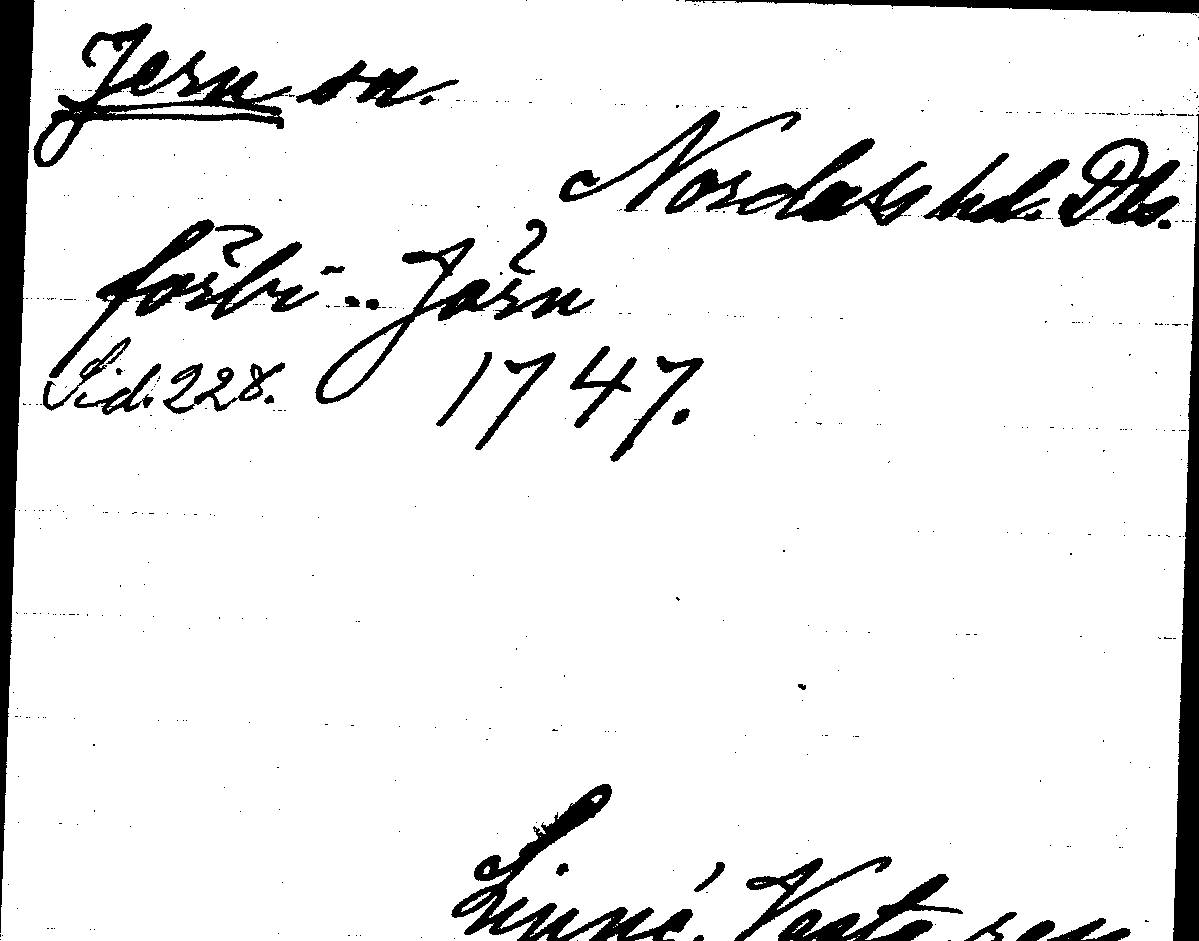 Jern sn.
Nordals hd. Dls.
förbi .. Jörn
Sid. 228. 1747.
Linné, Västg. resa